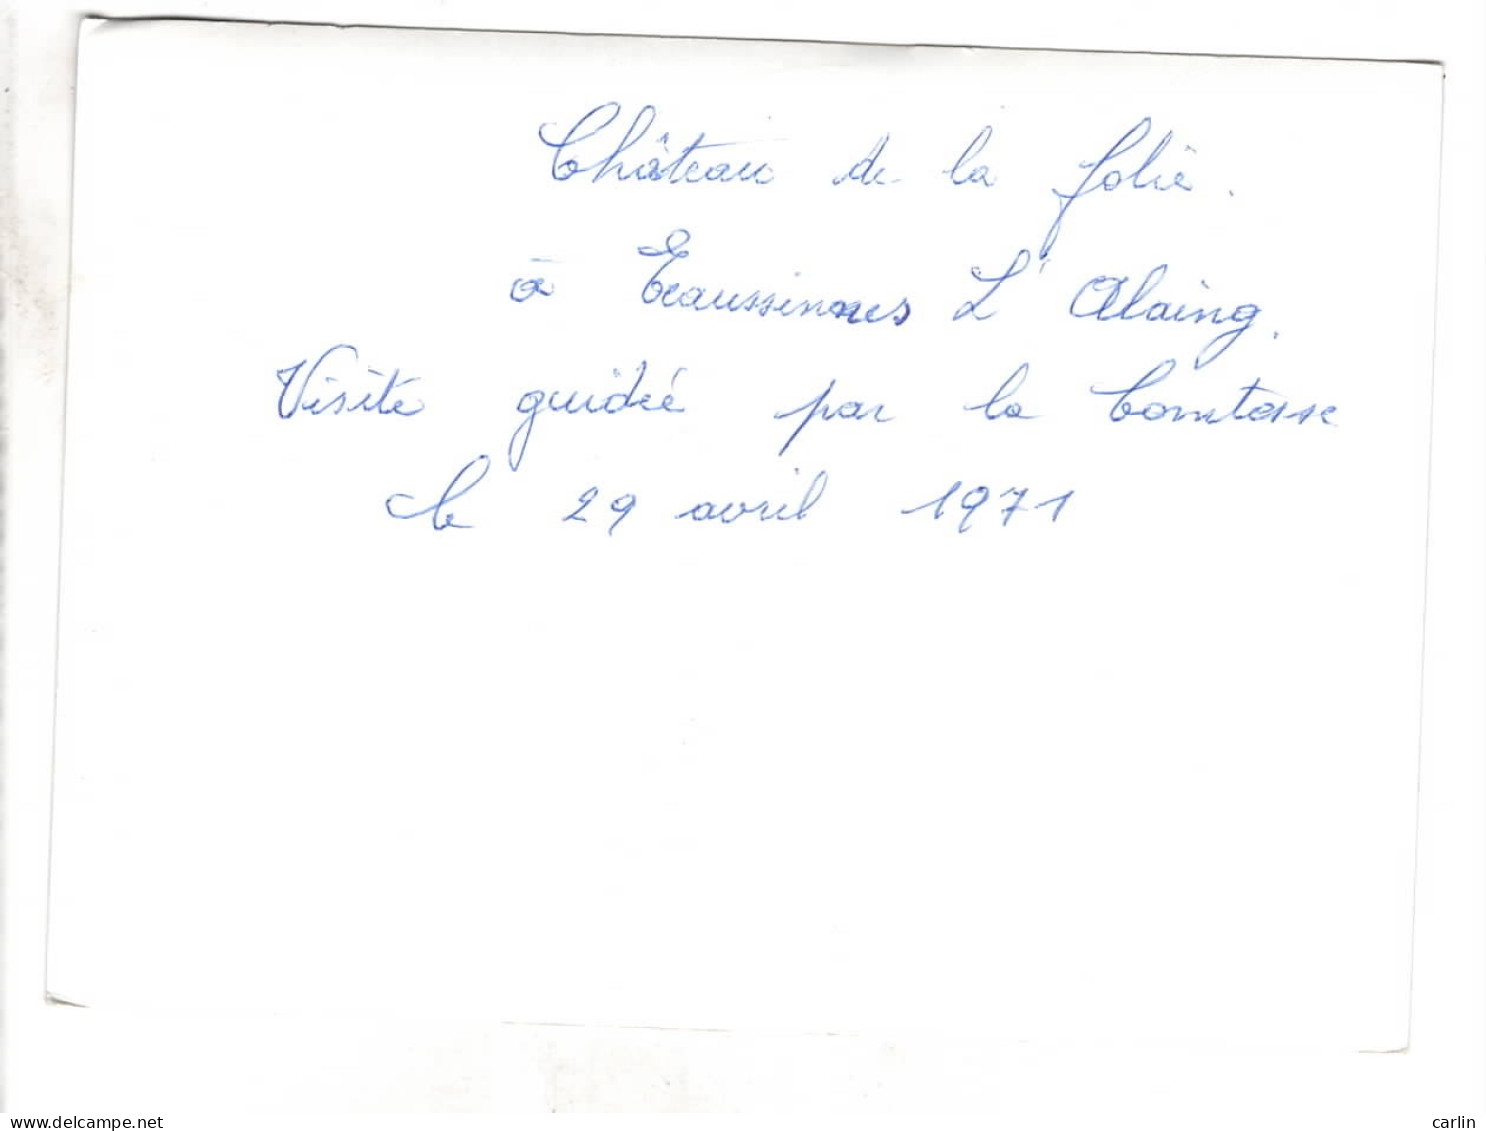 Château de la folie.
à Ecaussinnes L'Alaing.
Visite guidée par la Comtesse
le 29 avril 1971
www.delcampe.net
carlin